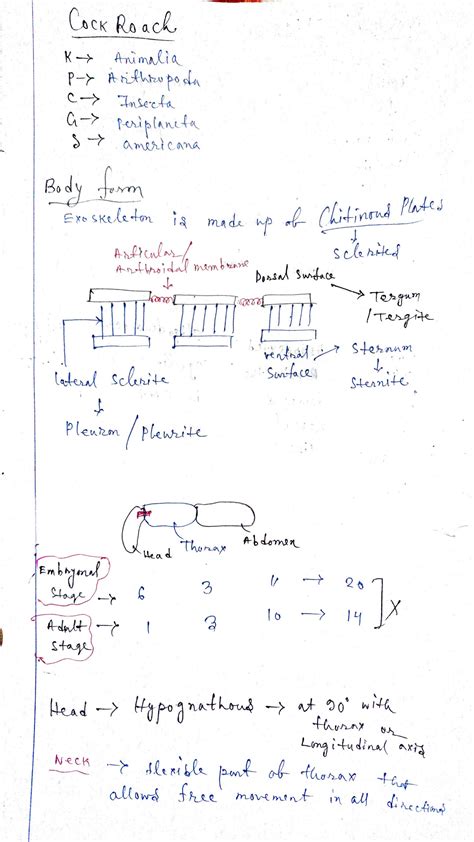 Cock Roach
K → Animalia
P → Arthropoda
C → Insecta
G → Periplaneta
S → americana
Body form
Exoskeleton is made up of Chitinous Plates
↓
sclerited
Articular/
Arthroidal membrane
Dorsal Surface → Tergum
/Tergite
ventral Surface → Sternum
↓
Sternite
lateral sclerite
↓
Pleuron / Pleurite
Head Thorax Abdomen
Embryonal Stage → 6 3 11 → 20
Adult Stage → 1 3 10 → 14 X
Head → Hypognathous → at 90° with
thorax or
Longitudinal axis
Neck → flexible part of thorax that
allows free movement in all directions